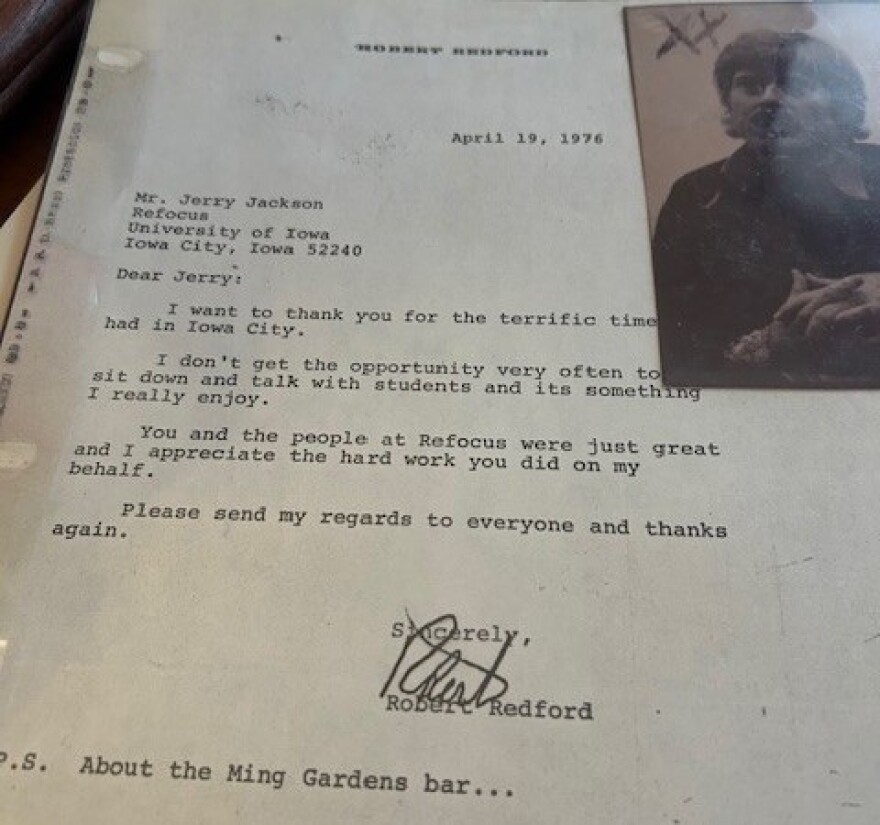 ROBERT REDFORD
April 19, 1976
Mr. Jerry Jackson
Refocus
University of Iowa
Iowa City, Iowa 52240
Dear Jerry:
I want to thank you for the terrific time
had in Iowa City.
I don't get the opportunity very often to
sit down and talk with students and its something
I really enjoy.
You and the people at Refocus were just great
and I appreciate the hard work you did on my
behalf.
Please send my regards to everyone and thanks
again.
Sincerely,
Robert
Robert Redford
P.S. About the Ming Gardens bar...